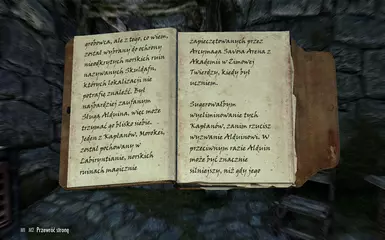 grobowca, ale z tego, co wiem,
został wybrany do ochrony
nieodkrytych norskich ruin
nazywanych Skuldafn,
których lokalizacji nie
potrafię znaleźć. Był
najbardziej zaufanym
Sługą Alduina, więc może
trzymać go blisko siebie.
Jeden z Kapłanów, Morokei,
został pochowany w
Labiryntianie, norskich
ruinach magicznie
zapieczętowanych przez
Arcymaga Savosa Arena z
Akademii w Zimowej
Twierdzy, kiedy był
uczniem.
Sugerowałbym
wyeliminowanie tych
Kapłanów, zanim rzucisz
wyzwanie Alduinowi. W
przeciwnym razie Alduin
może być znacznie
silniejszy, niż gdy jego
Przewróć stronę